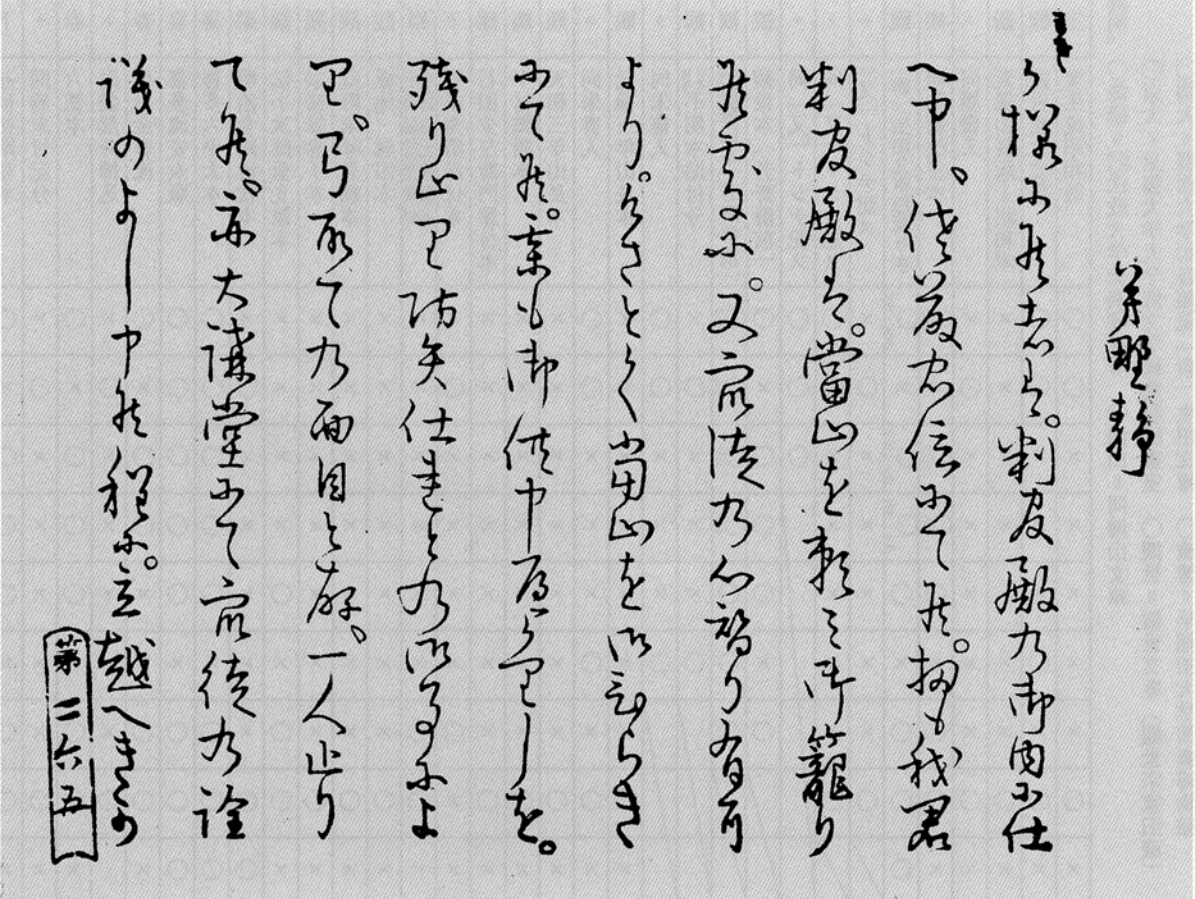 芳野静
か様に候者は。判官殿の御内に仕
へ申、佐藤忠信にて候。扨も我君
判官殿は。當山を頼み御籠り
候處に。又衆徒の心替り有
より。今さとく當山を御ひらき
にて候。某も御供申
残り止り防矢仕との御事によ
り。弓取ての面目と存、一人止り
て候。亦大講堂にて衆徒の詮
議のよし申候程に。立越へき
第二六五